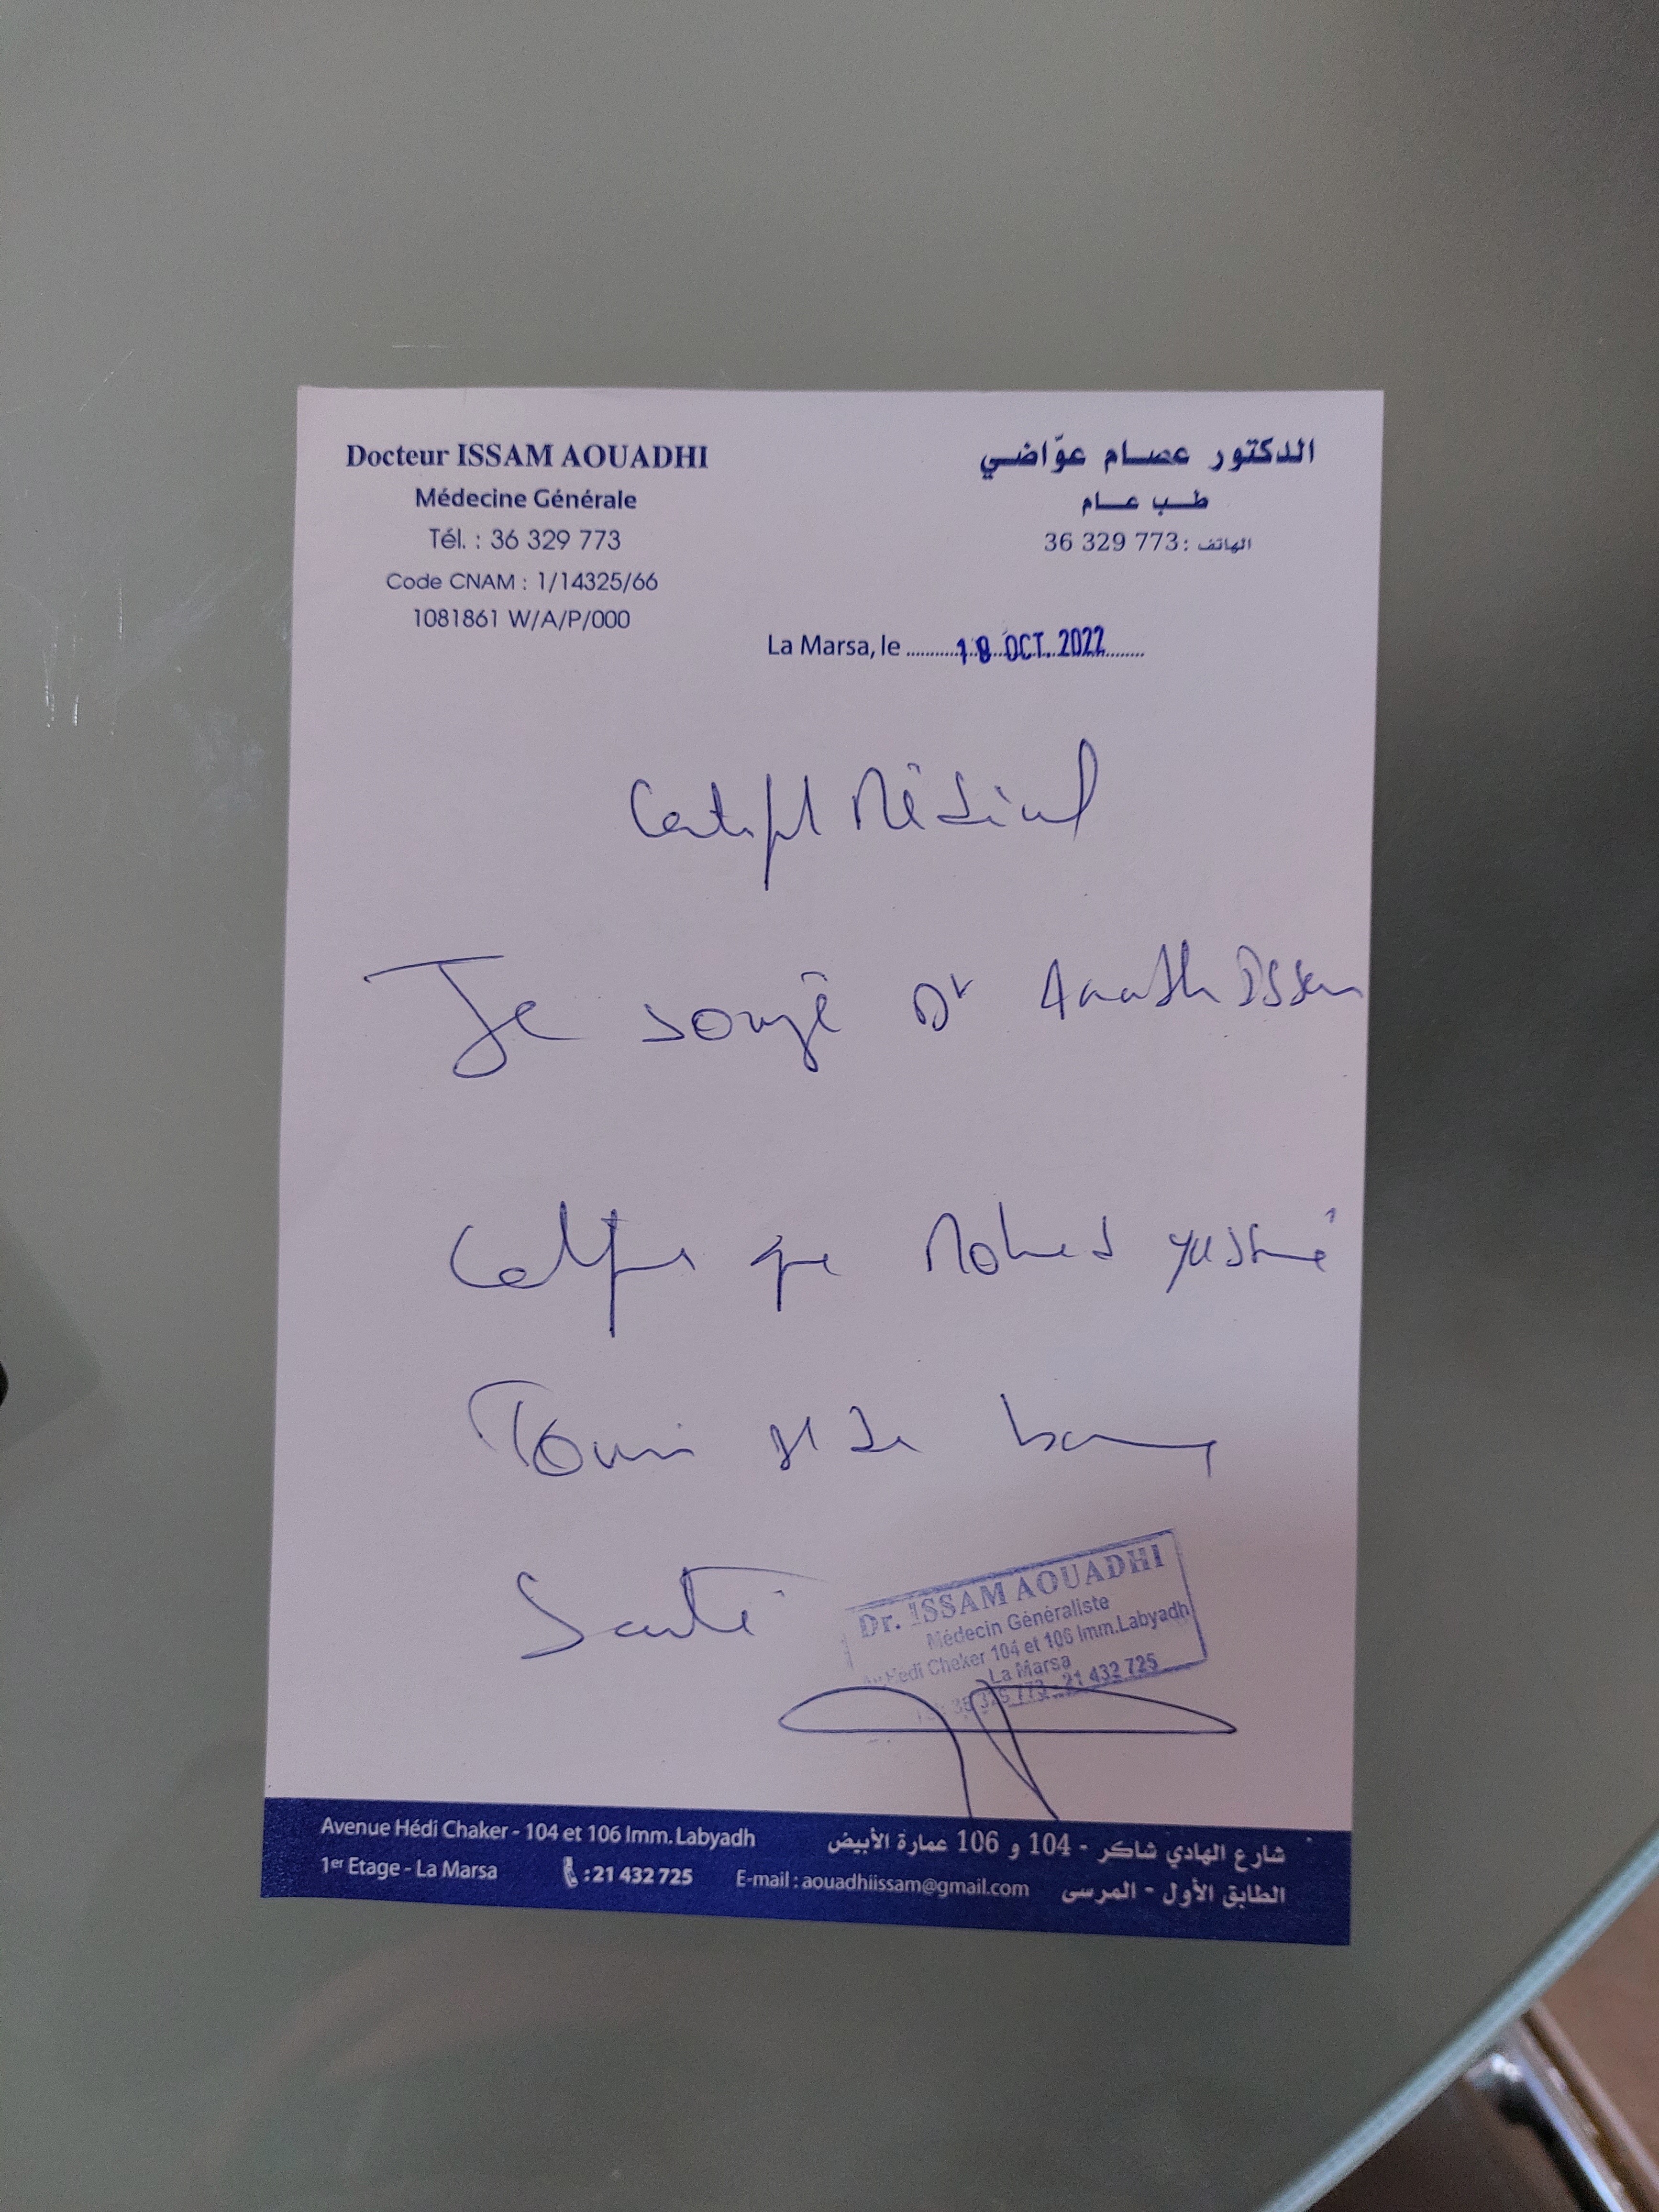 Docteur ISSAM AOUADHI
Médecine Générale
Tél. : 36 329 773
Code CNAM : 1/14325/66
1081861 W/A/P/000
الدكتور عصام عوّاضي
طب عام
الهاتف : 36 329 773
La Marsa, le 18 OCT. 2022
Certificat Médical
Je soussigné Dr Aouadhi Issam
Certifie que Mohamed
est de bonne
Santé
Dr. ISSAM AOUADHI
Médecin Généraliste
Av. Hedi Cheker 104 et 106 Imm.Labyadh
La Marsa
21 432 725
Avenue Hédi Chaker - 104 et 106 Imm. Labyadh
1er Etage - La Marsa :21 432 725 E-mail : aouadhiissam@gmail.com
شارع الهادي شاكر - 104 و 106 عمارة الأبيض
الطابق الأول - المرسى